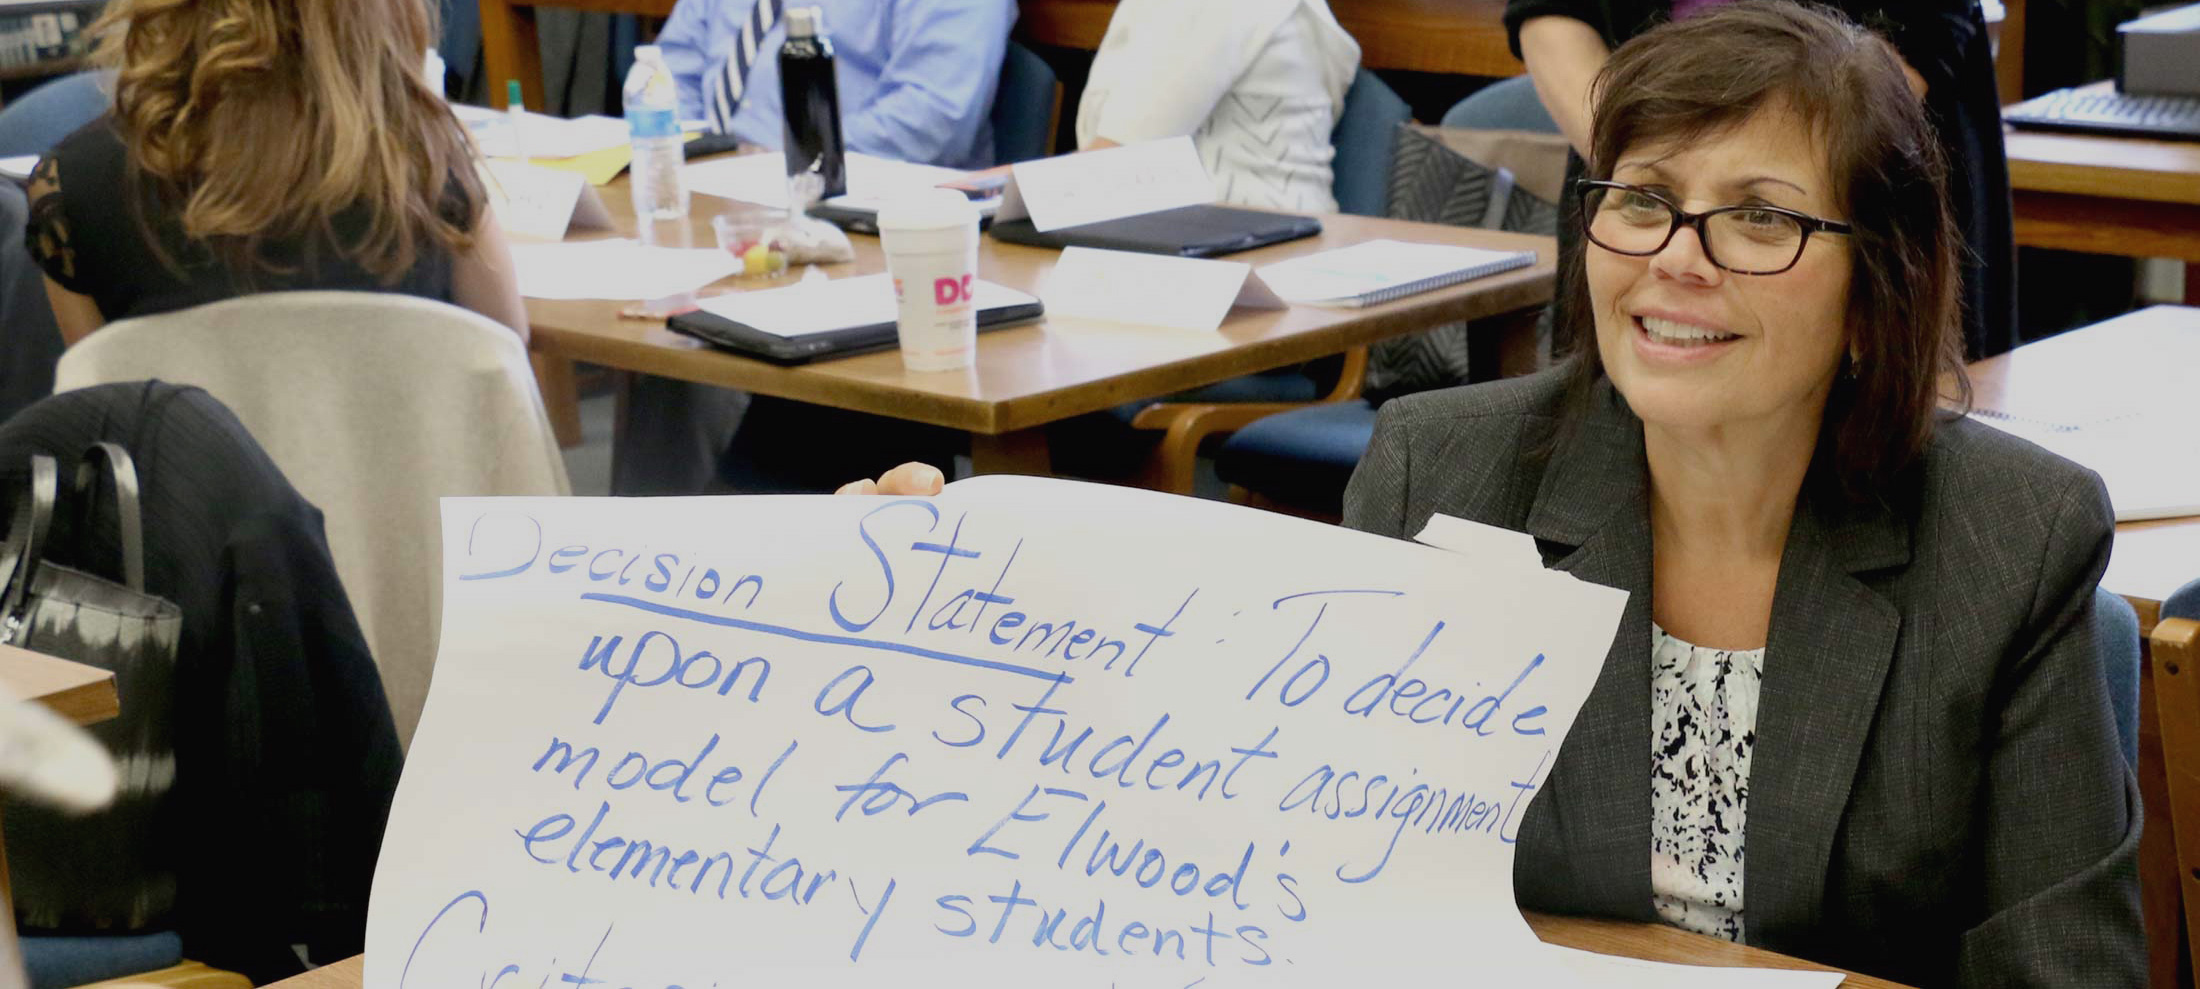 Decision Statement: To decide
upon a student assignment
model for Elwood's
elementary students.
Criteria
DO